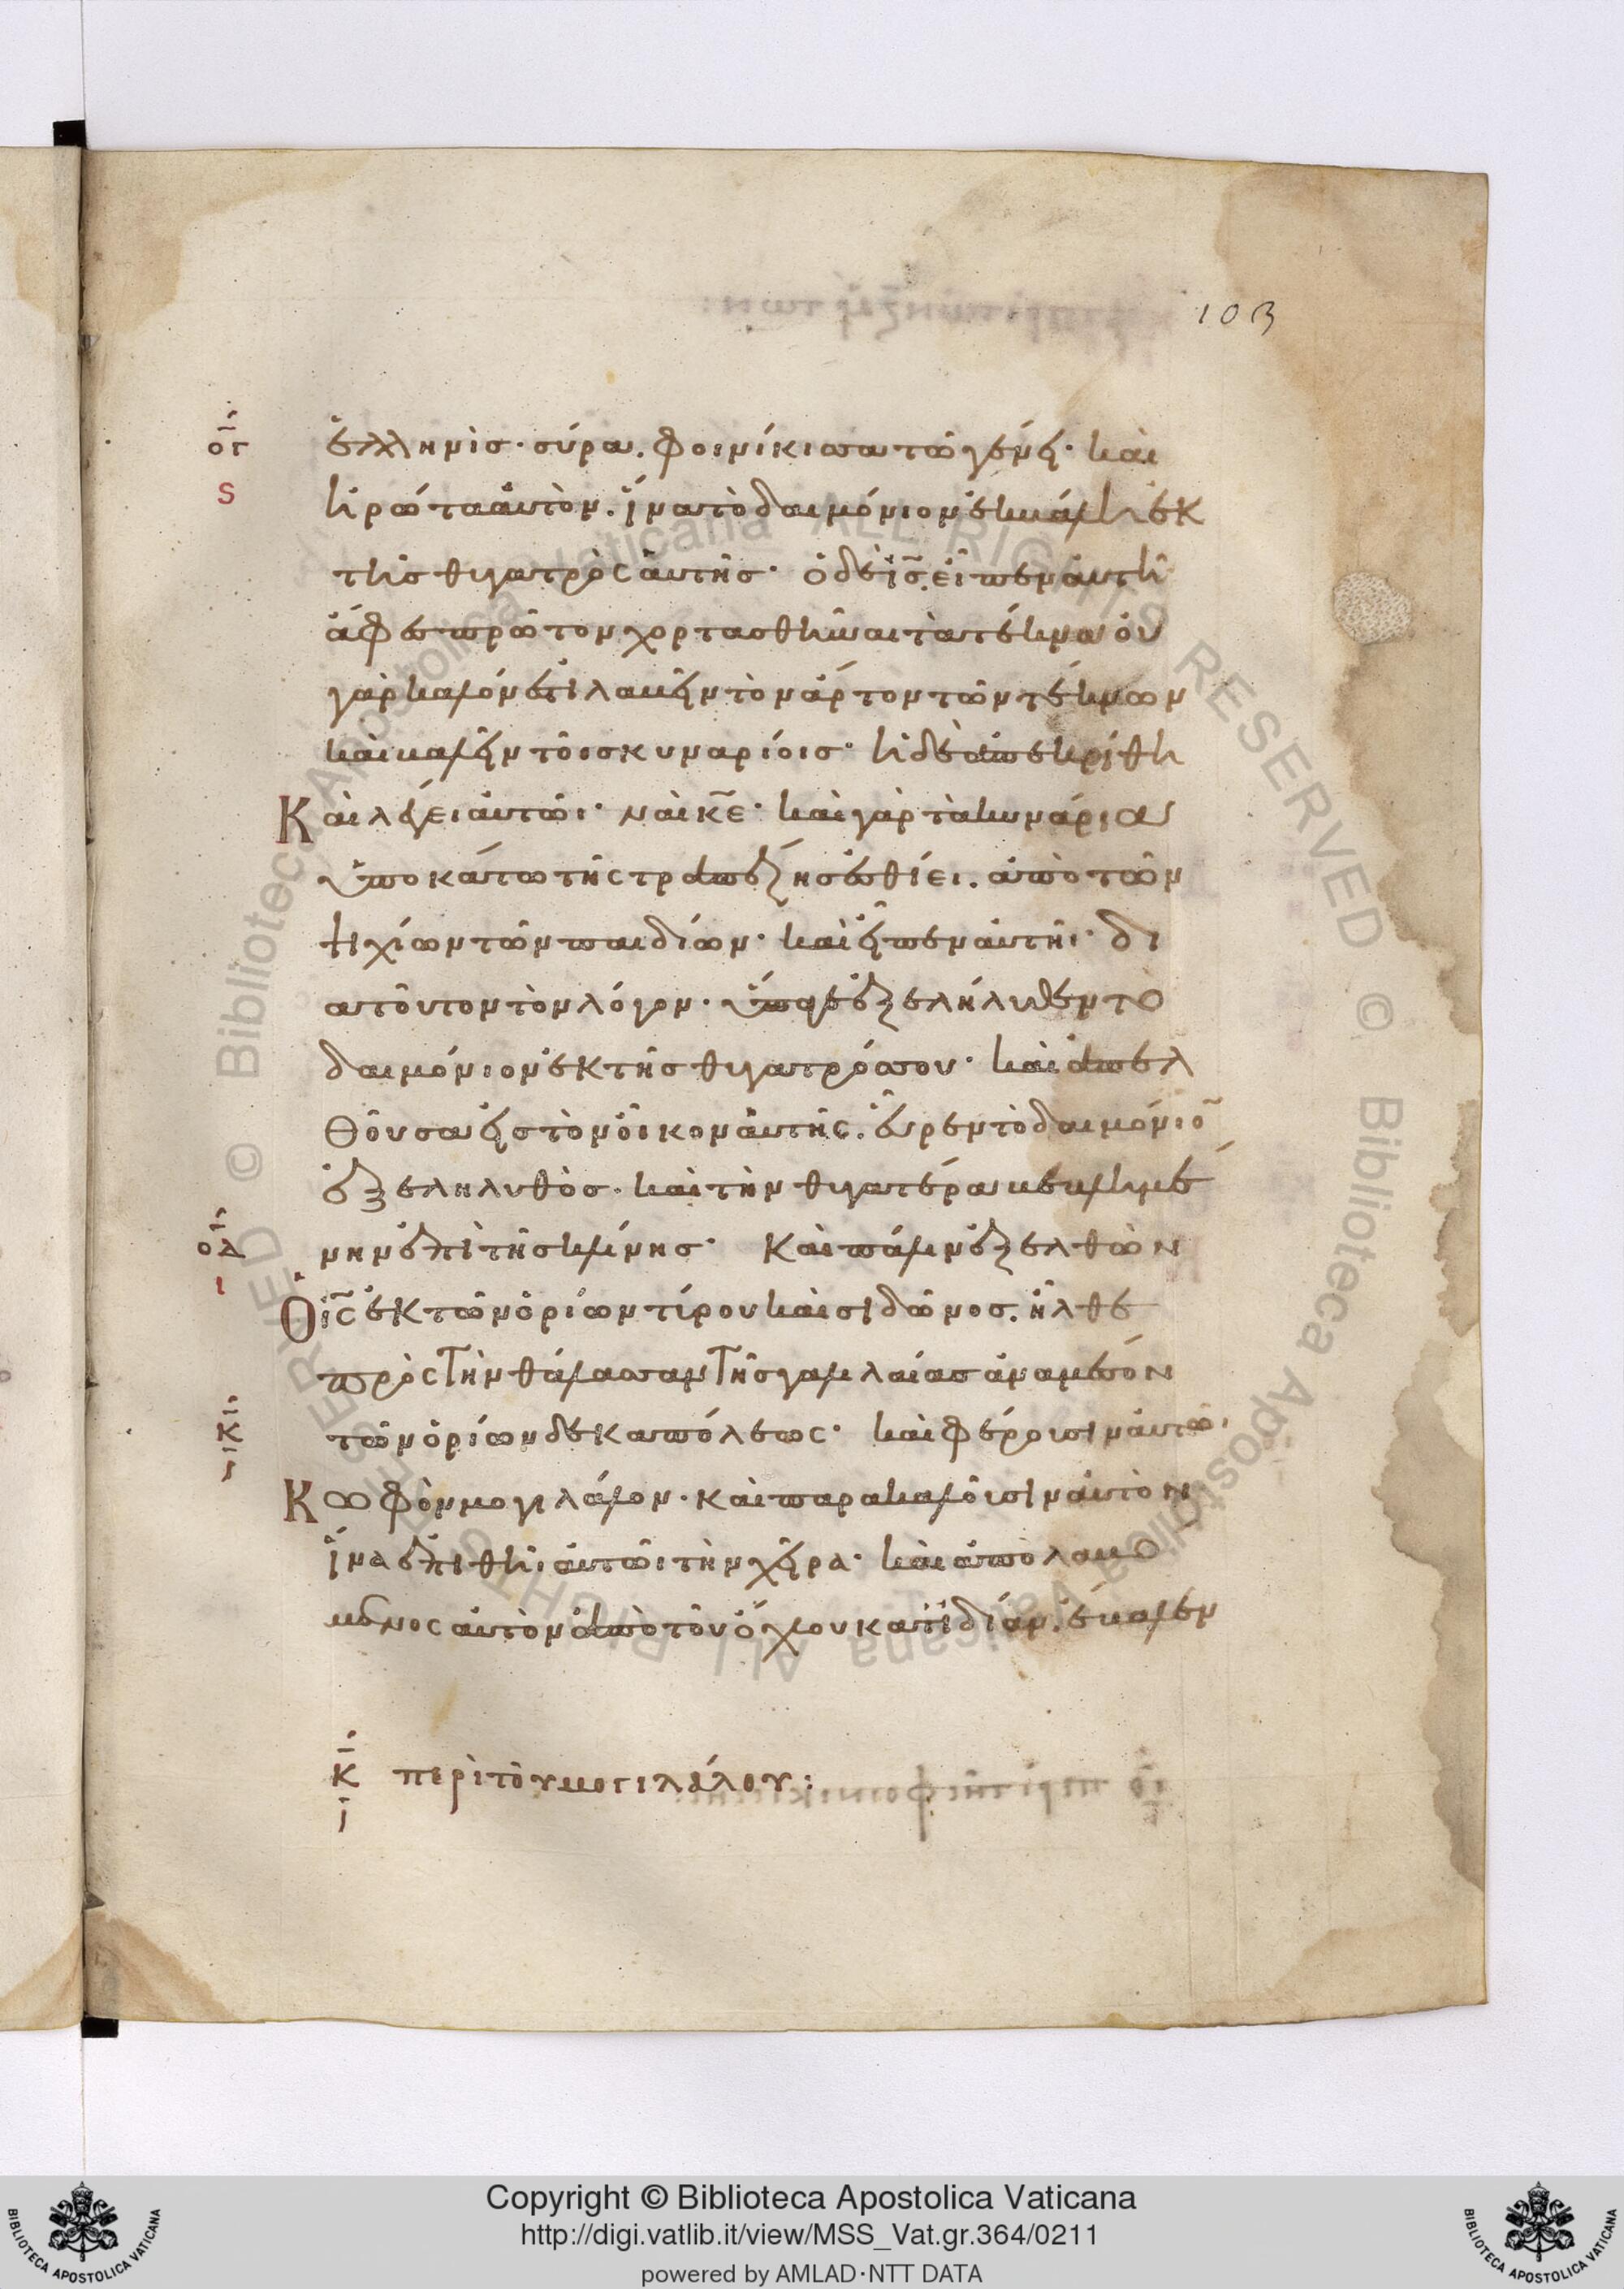 103
ογ
ς
ἑλληνὶσ· σύρα. φοινίκισσα τῶ γένει· καὶ
ἠρώτα ἀυτὸν. ἵνα τὸ δαιμόνιον ἐκβάλη ἐκ
τῆσ θυγατρὸς ἀυτῆσ· ὁ δὲ ἰ̅σ̅. εἶπεν ἀυτῆ
ἄφεσ πρῶτον χορτασθῆναι τὰ τέκνα ὀυ
γὰρ καλόν ἐστι λαβεῖν τὸν ἄρτον τῶν τέκνων
καὶ βαλεῖν τοῖσ κυναρίοισ· ἡ δὲ ἀπεκρίθη
Καὶ λέγει ἀυτῶι· ναὶ κ̅ε̅· καὶ γὰρ τὰ κυνάρια
ὑποκάτω τῆς τραπέζησ ἐσθίει. ἀπὸ τῶν
ψιχίων τῶν παιδίων· καὶ εἶπεν ἀυτῆι· δι
α τοῦτον τὸν λόγον· ὕπαγε ἐξελήλυθεν το
δαιμόνιον ἐκ τῆσ θυγατρόσ σου· καὶ ἀπελ
θοῦσα εἰς τὸν οἶκον ἀυτῆς. εὗρεν τὸ δαιμόνιο̅
ἐξεληλυθὸσ· καὶ τὴν θυγατέρα βεβλημέ
νην ἐπὶ τῆσ κλίνησ· Καὶ πάλιν ἐξελθὼν
οδ
ι
Ὁ ἰ̅ς̅ ἐκ τῶν ὁρίων τύρου καὶ σιδῶνοσ. ἦλθε
πρὸς τὴν θάλασσαν τῆσ γαλιλαίασ ἀναμεσόν
τῶν ὁρίων δεκαπόλεως· καὶ φέρουσιν ἀυτῶι
κ
ι
Κωφὸν μογιλάλον· καὶ παρακαλοῦσιν ἀυτὸν
ἵνα ἐπιθῆι ἀυτῶι τὴν χεῖρα· καὶ ἀπολαβό
μενος ἀυτὸν ἀπὸ τοῦ ὄχλου κατϊδίαν. ἔβαλεν
κ περὶ τοῦ μογιλάλου:
ι
Copyright © Biblioteca Apostolica Vaticana
http://digi.vatlib.it/view/MSS_Vat.gr.364/0211
powered by AMLAD·NTT DATA
BIBLIOTECA APOSTOLICA VATICANA
BIBLIOTECA APOSTOLICA VATICANA